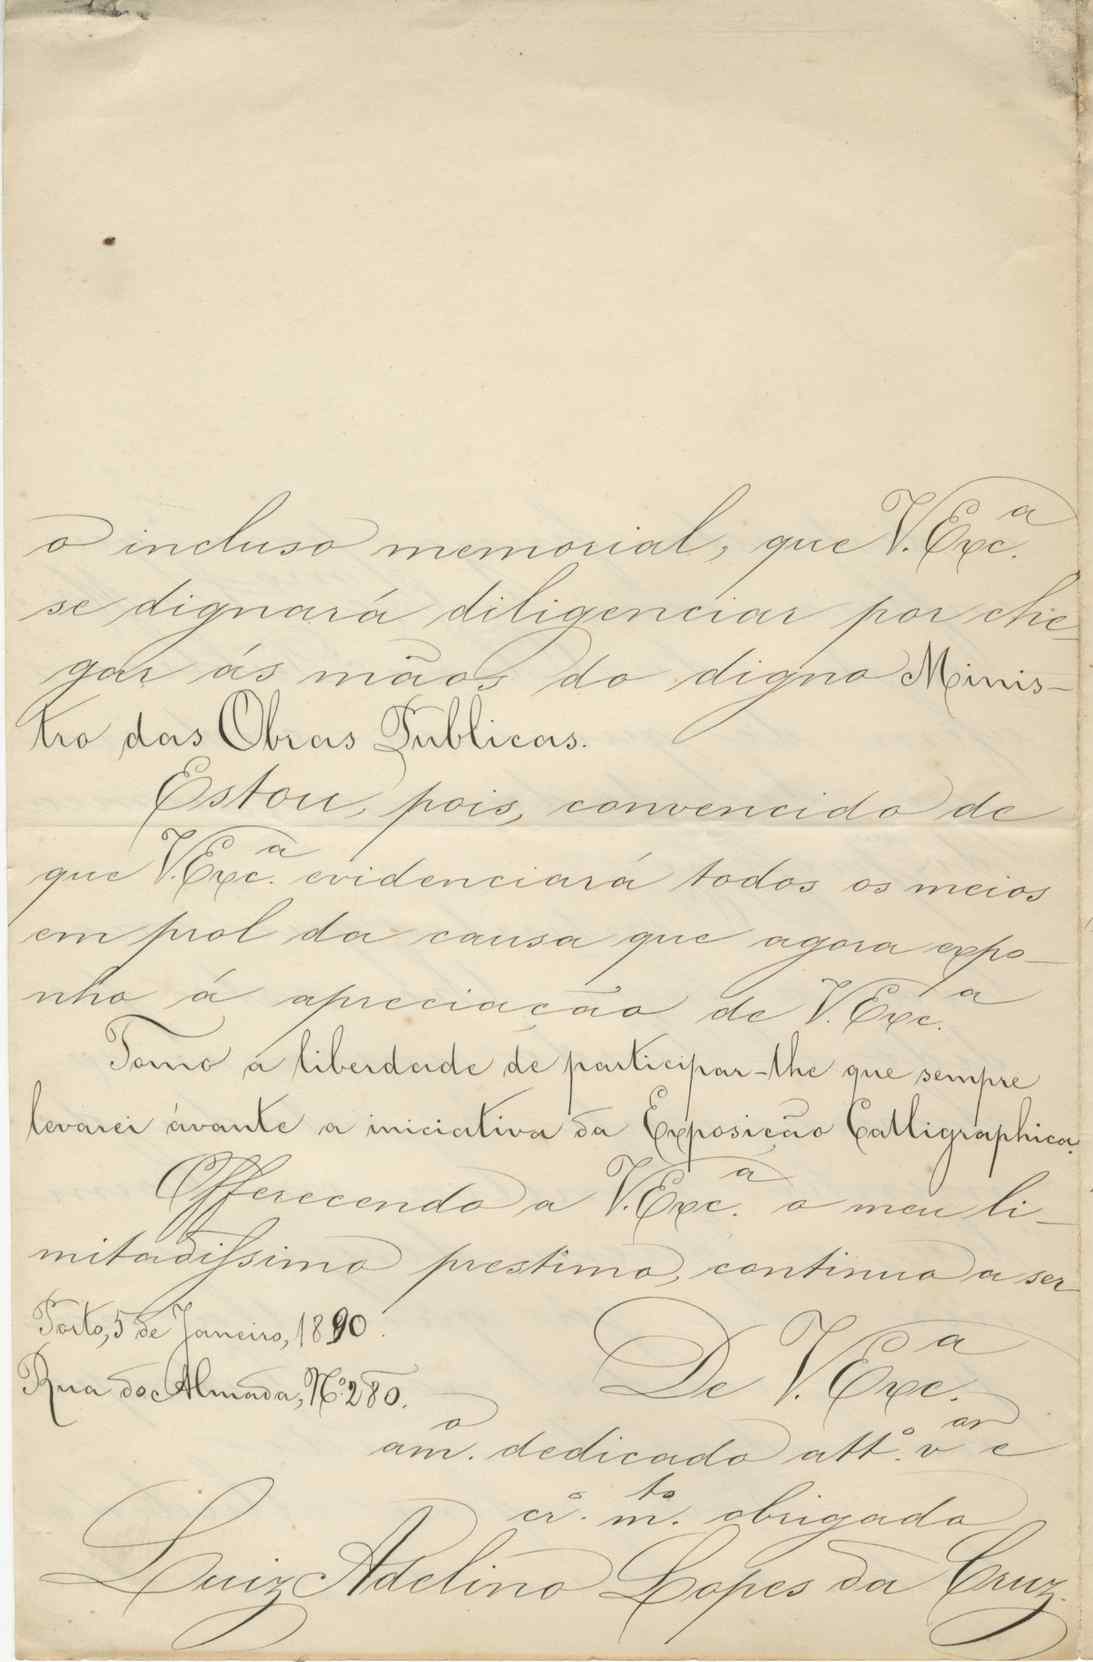 o incluso memorial, que V. Exc.ª
se dignará diligenciar por che-
gar ás mãos do digno Minis-
tro das Obras Publicas.
Estou, pois, convencido de
que V. Exc.ª evidenciará todos os meios
em prol da causa que agora expo-
nho á apreciação de V. Exc.ª
Tomo a liberdade de participar-lhe que sempre
levarei ávante a iniciativa da Exposição Calligraphica.
Offerecendo a V. Exc.ª o meu li-
mitadissimo prestimo, continuo a ser
Porto, 5 de Janeiro, 1890.
Rua do Almada, Nº 280.
De V. Exc.ª
am.º dedicado att.º v.or e
cr.º m.to obrigado
Luiz Adelino Lopes da Cruz.